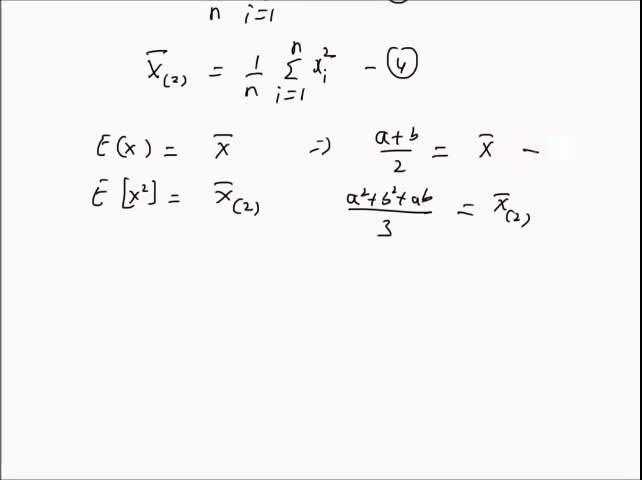 n i=1
X̄₍₂₎ = 1/n Σⁿᵢ₌₁ xᵢ² - ④
E(x) = x̄ => (a+b)/2 = x̄ -
E[x²] = x̄₍₂₎ (a²+b²+ab)/3 = x̄₍₂₎